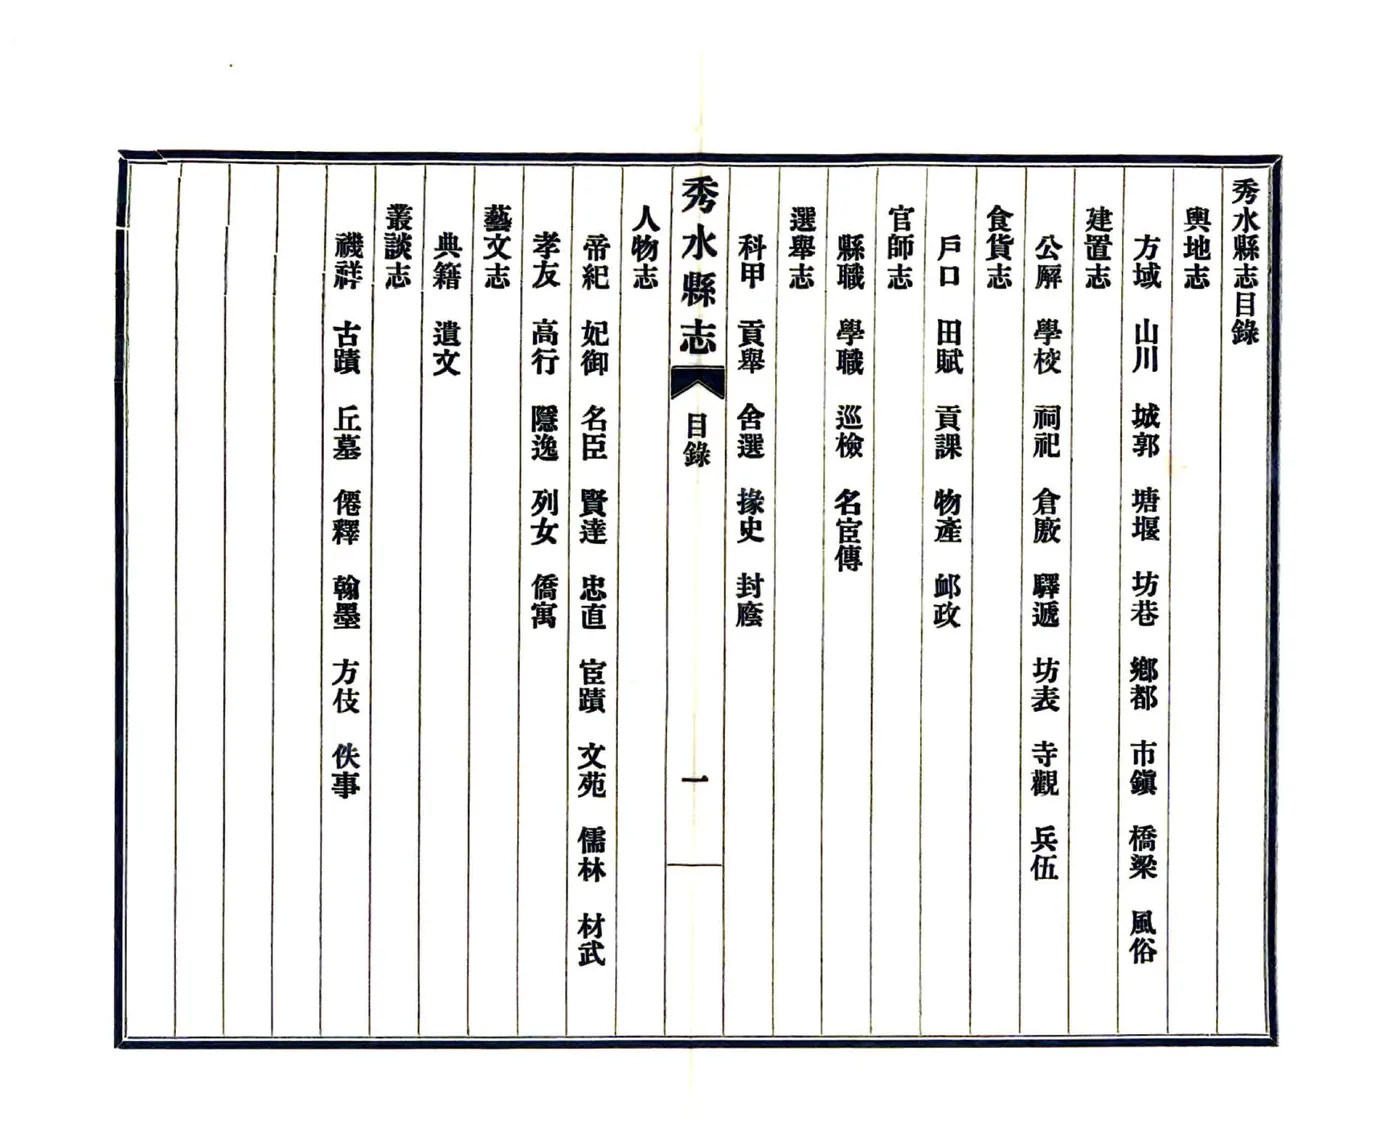 秀水縣志目錄
輿地志
方域　山川　城郭　塘堰　坊巷　鄉都　市鎭　橋梁　風俗
建置志
公廨　學校　祠祀　倉廒　驛遞　坊表　寺觀　兵伍
食貨志
戶口　田賦　貢課　物產　邮政
官師志
縣職　學職　巡檢　名宦傳
選舉志
科甲　貢舉　舍選　掾史　封廕
秀水縣志　目錄　一
人物志
帝紀　妃御　名臣　賢達　忠直　宦蹟　文苑　儒林　材武
孝友　高行　隱逸　列女　僑寓
藝文志
典籍　遺文
叢談志
禨祥　古蹟　丘墓　僊釋　翰墨　方伎　佚事